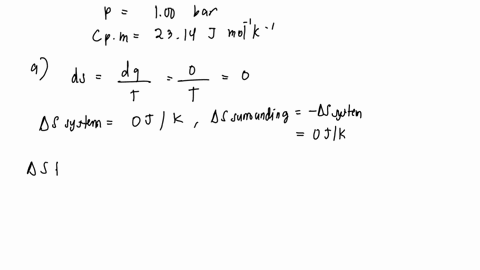 p = 1.00 bar
Cp.m = 23.14 J mol⁻¹ k⁻¹
a) ds = dq/T = 0/T = 0
ΔS system = 0 J / K , ΔS surrounding = -ΔS system
= 0 J/K
ΔS f